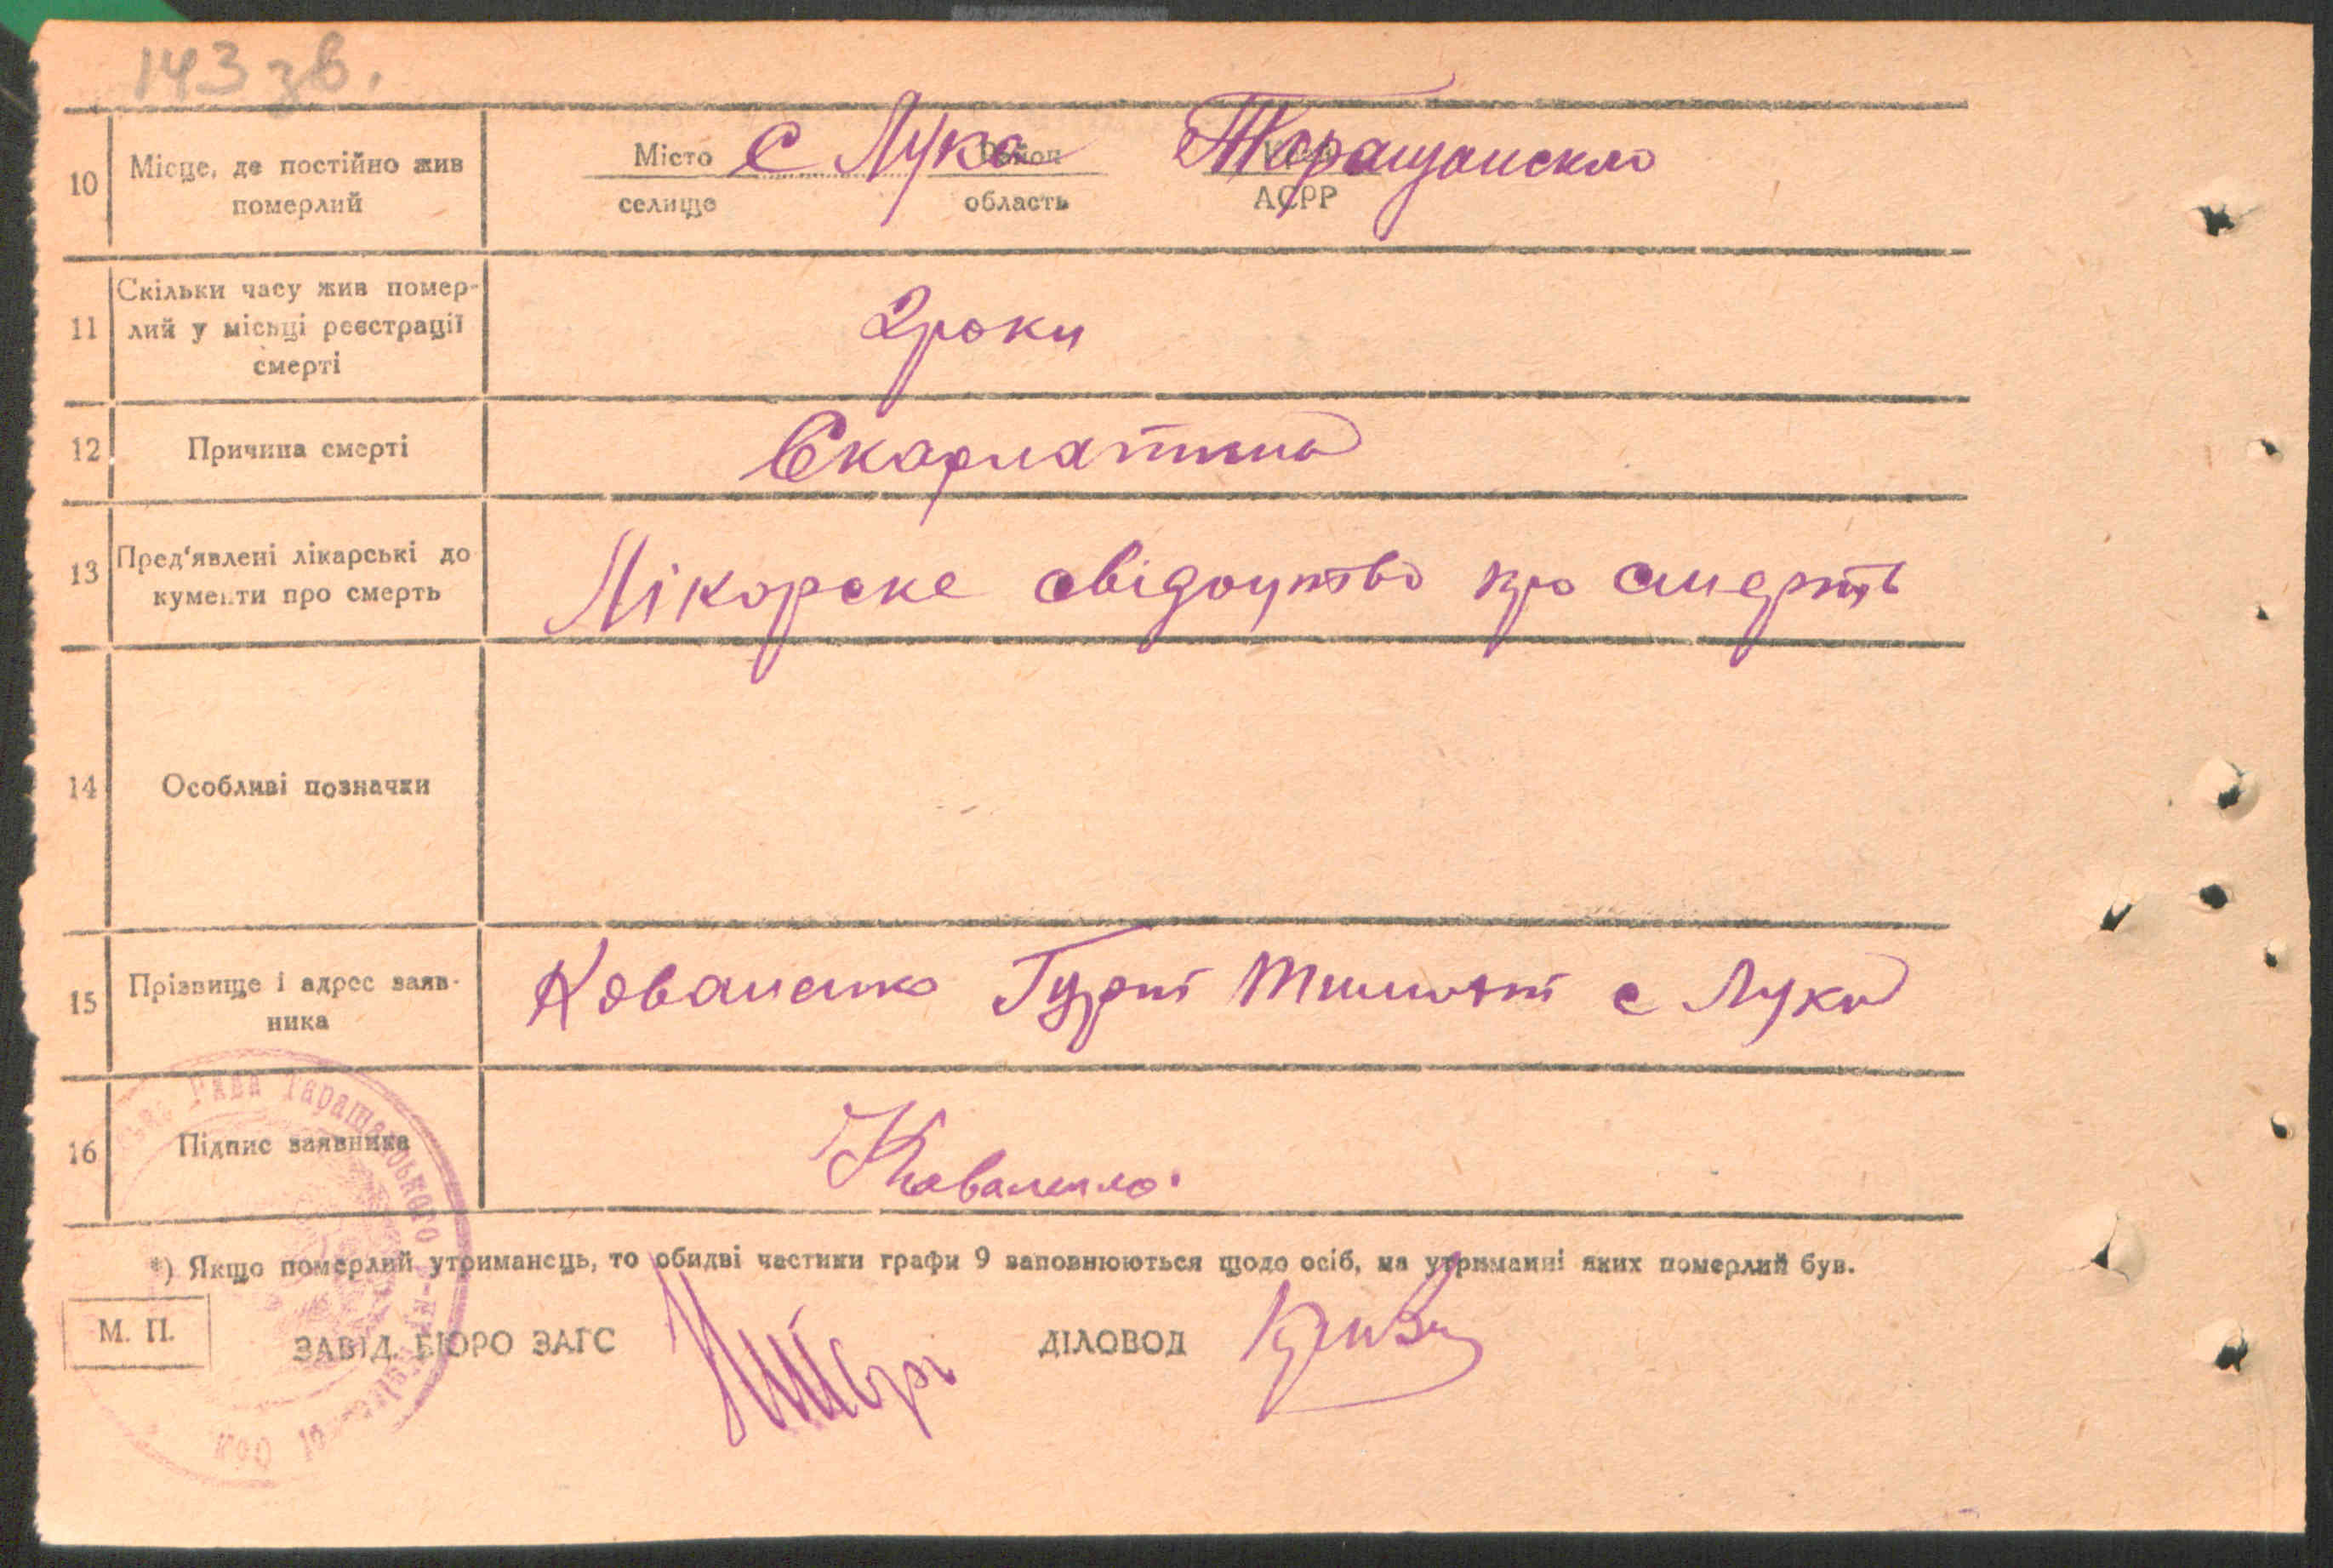 143 зв.
10 Місце, де постійно жив померлий
Місто с Лука Район Таращанского
селище область АСРР
11 Скільки часу жив помер-
лий у місьці реєстрації
смерті
2 роки
12 Причина смерті Скарлатина
13 Пред'явлені лікарські до
кументи про смерть
Лікарске свідоцтво про смерть
14 Особливі позначки
15 Прізвище і адрес заяв-
ника
Коваленко с Лука
16 Підпис заявника Коваленко.
Рада Таращанського
*) Якщо померлий утриманець, то обидві частини графи 9 заповнюються щодо осіб, на утриманні яких померлий був.
М. П.
ЗАВІД. БЮРО ЗАГС ДІЛОВОД